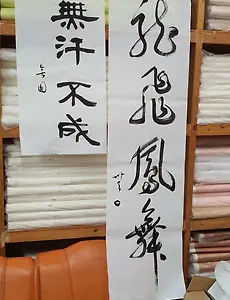 無汗不成
龍飛鳳舞